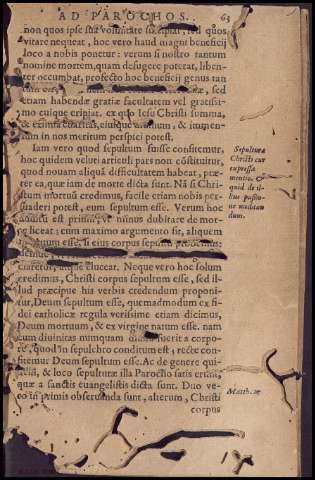 AD PAROCHOS. 63
non quos ipse sua voluntate suscipiat, sed quos
vitare nequeat, hoc vero haud magni beneficij
loco a nobis ponetur: verum si nostro tantum
nomine mortem, quam defugere poterat, liben-
ter occumbat, profecto hoc beneficij genus tan
tum est, sed
etiam habendæ gratiæ facultatem vel gratissi-
mo cuique eripiat. ex quo Iesu Christi summa,
& eximia charitas, eiusque & immen-
sum in nos meritum perspici potest.
Iam vero quod sepultum fuisse confitemur,
hoc quidem veluti articuli pars non cōstituitur,
quod nouam aliquā difficultatem habeat, præ-
ter ea, quæ iam de morte dicta sunt. Nā si Chri-
stum mortuū credimus, facile etiam nobis per-
suaderi potest, eum sepultum esse. Verum hoc
additū est primū, vt minus dubitare de mor-
te liceat: cum maximo argumento sit, aliquem
mortuum esse, si eius corpus sepultū probemus:
deinde,
claresceret, atque eluceat. Neque vero hoc solum
credimus, Christi corpus sepultum esse, sed il-
lud præcipue his verbis credendum proponi-
tur, Deum sepultum esse, quemadmodum ex fi-
dei catholicæ regula verissime etiam dicimus,
Deum mortuum, & ex virgine natum esse. nam
cum diuinitas numquam diuisa fuerit a corpo-
re, quod in sepulchro conditum est, recte con-
fitemur Deum sepultum esse. Ac de genere qui-
dem, & loco sepulturæ illa Parocho satis erunt,
quæ a sanctis euangelistis dicta sunt. Duo ve-
ro in primis obseruanda sunt, alterum, Christi
corpus
Sepulturæ
Christi cur
expressa
mentio. &
quid de il-
lius passio-
ne meditan
dum.
Matth. 27